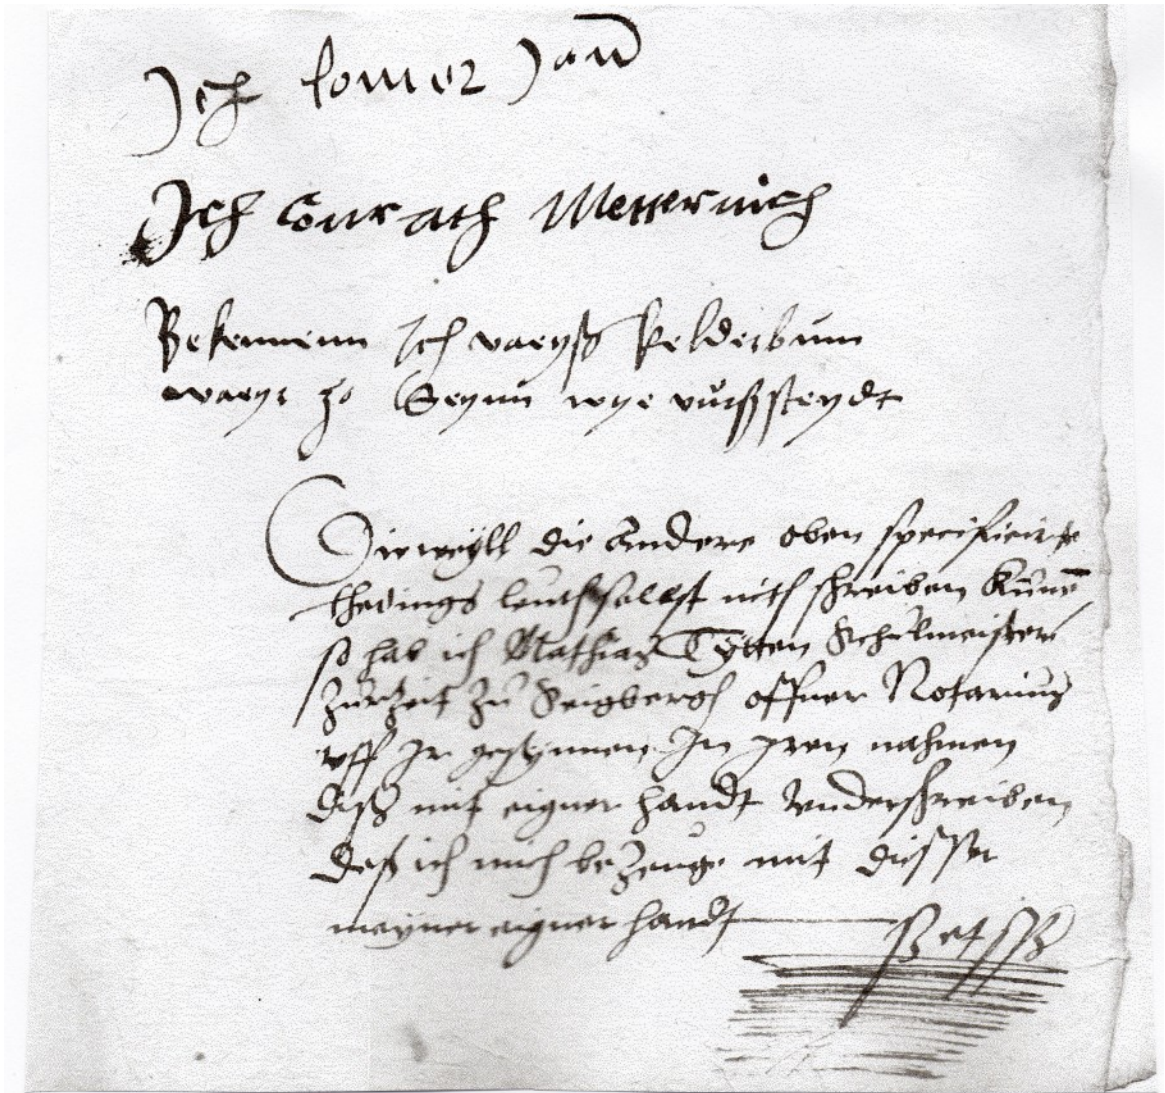 Ich lomer Jan
Ich Conrath Metternich
Bekennenn Ich
zo Seynn wye vurßsteydt
Dieweyll die andere oben specificirte
thedings leuth selbst nith schreiben künen
so hab ich Mathias Tytten Schulmeister
zurzeit zu Seigbergh offner Notarius
vff Ir gesynnen In yren nahmen
diß mit eigner handt vnderschreiben
deß ich mich bezeuge mit dießer
meyner eigner handt